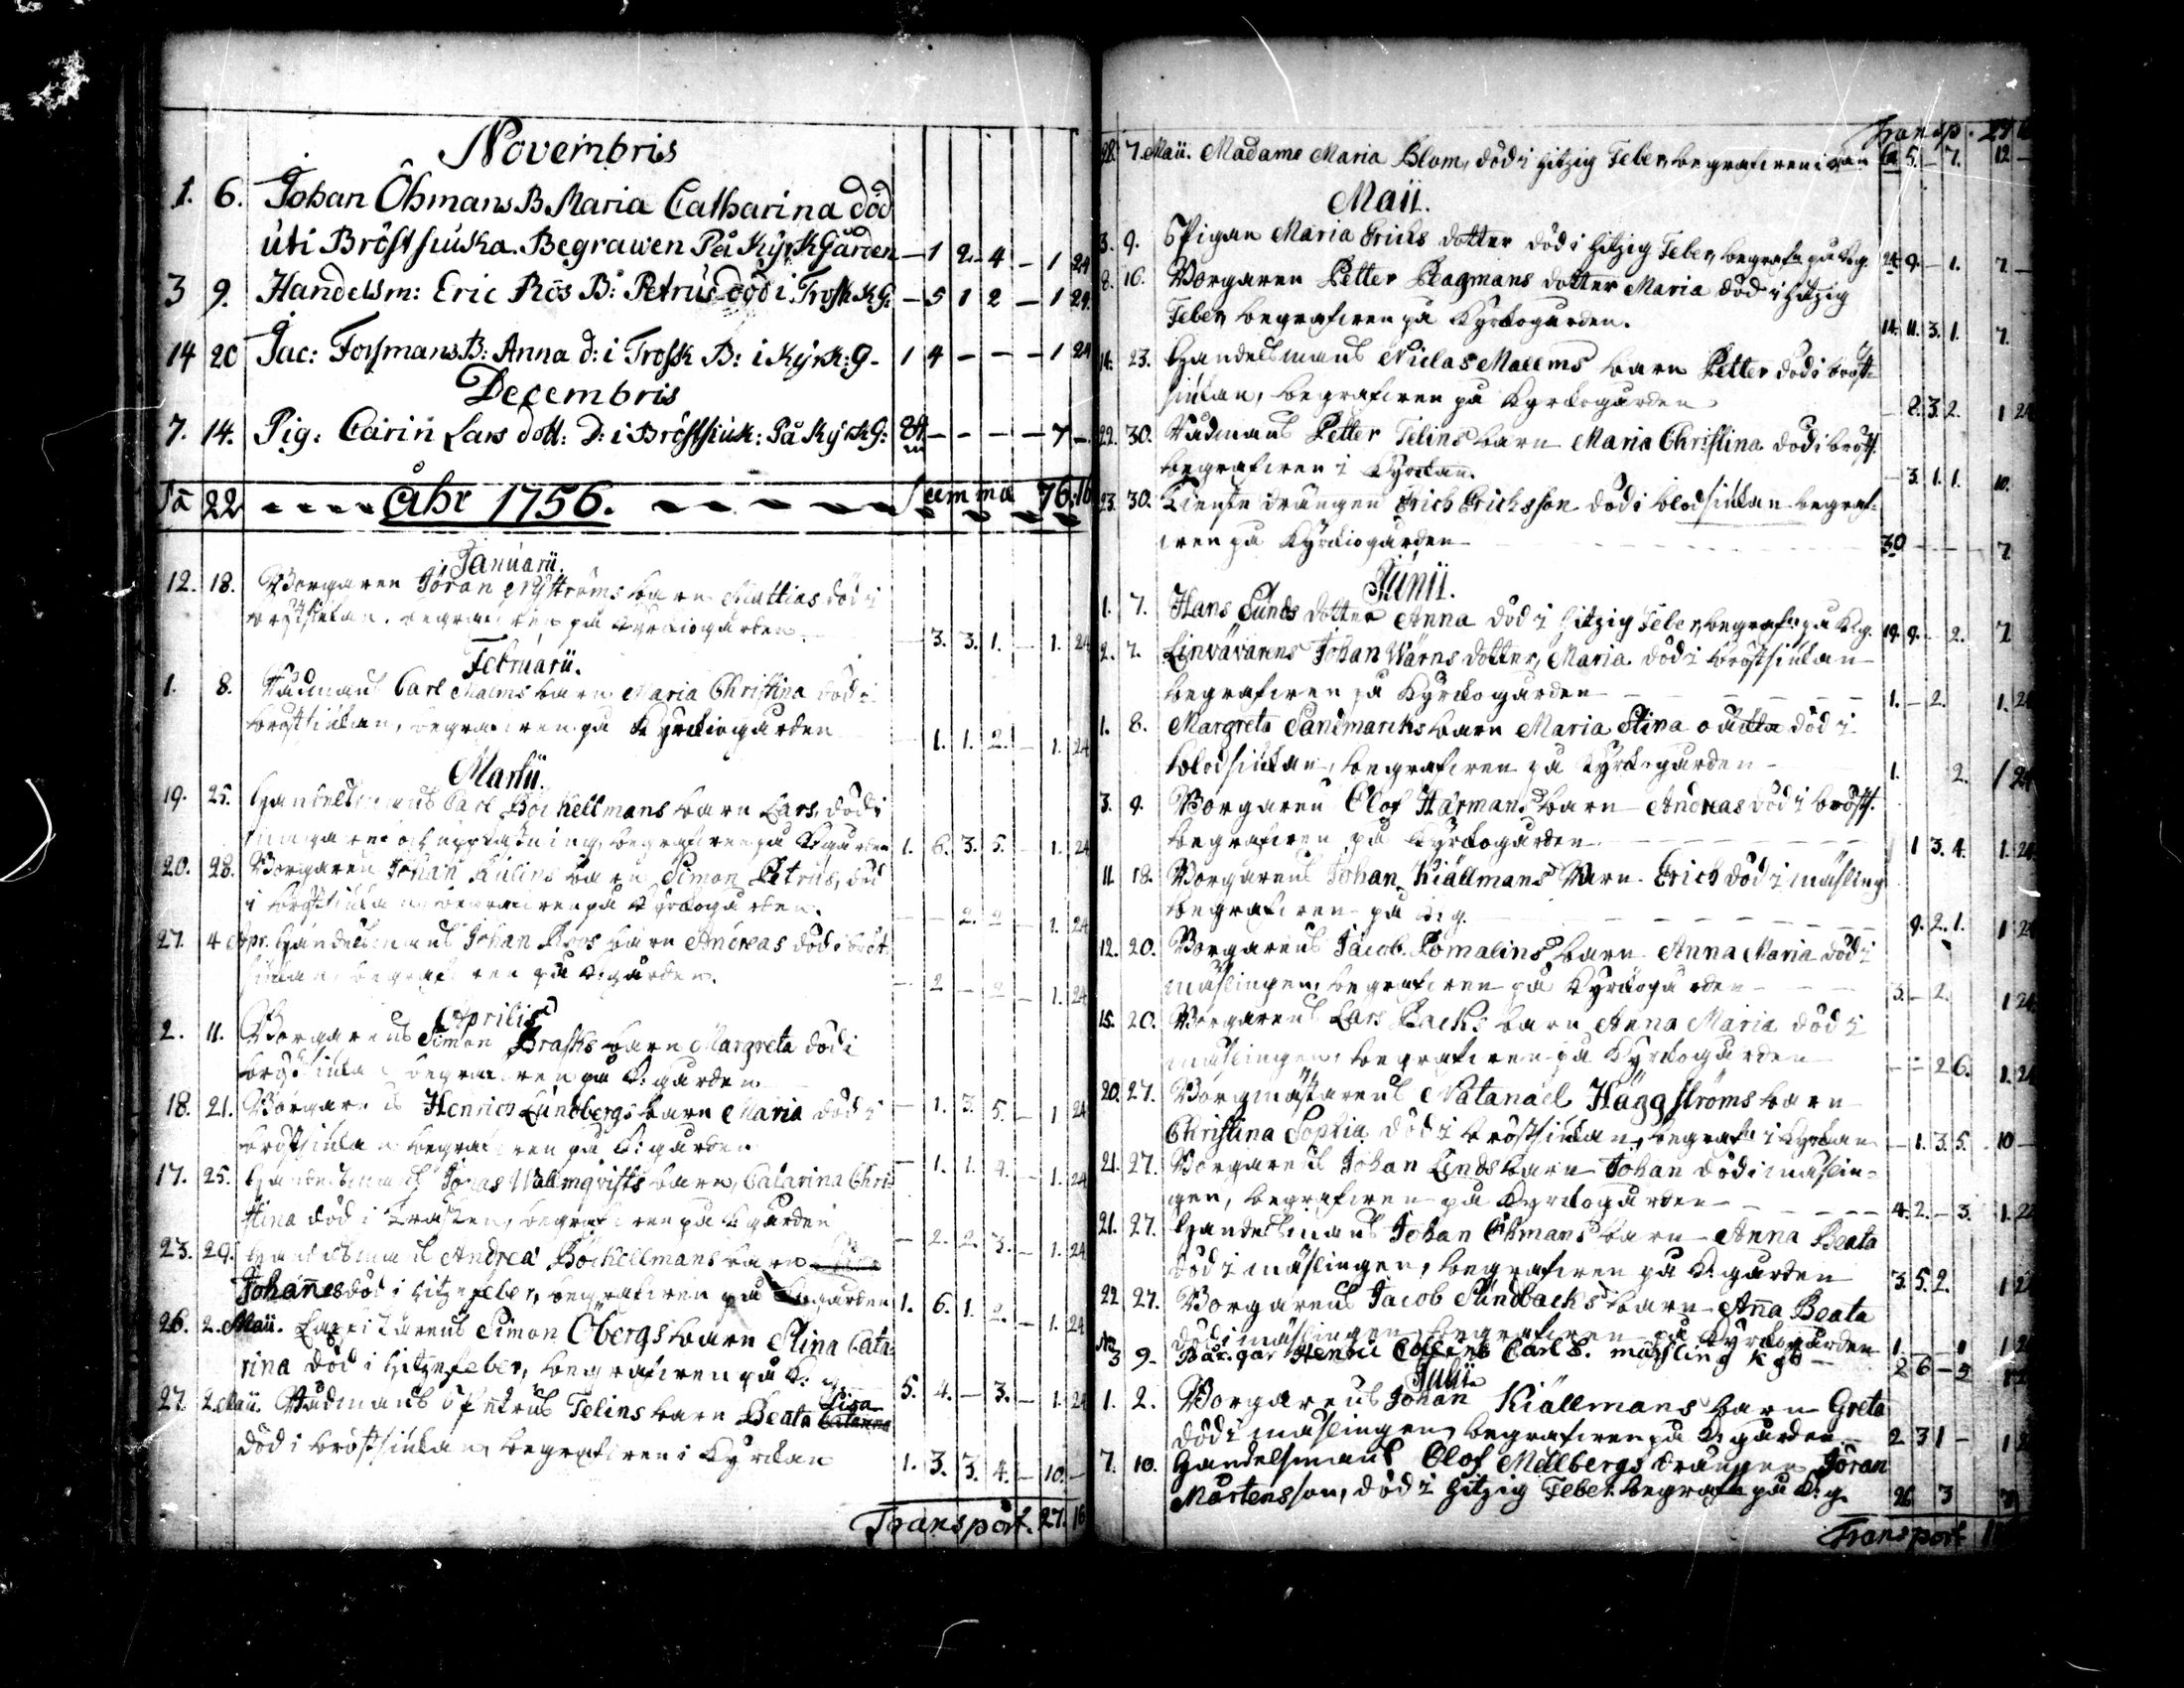 Novembris
1. 6. Johan Öhmans B Maria Catharina död
uti Bröstsiuka. Begrawen På KyrkGården — 1 2. 4 — 1 24
3 9. Handelsm: Eric Roos B: Petrus död i Trosk K G: — 5 1 2 — 1 24.
14 20 Jac: Forsmans B: Anna d: i Trosk B: i Kyrk: g - 1 4 — — — 1 24
Decembris
7. 14. Pig: Carin Lars dott: D: i Bröstsiuk: På Kyrk G: 84 — — — — 7 —
Sa 22 Åhr 1756. Summa 76:16
Januarii.
12. 18. Borgaren Jöran Nyströms barn Mattias död i
bröstsiukan, begrafwen på Kyrckiogården — 3. 3. 1. — 1. 24
Februarii.
1. 8. Rådmans Carl Malms barn Maria Christina död i
bröstsiukan, begrafwen på Kyrckiogården — 1. 1. 2. — 1. 24
Martii.
19. 25. Handelsmans Carl Böckellmans barn Lars, död i
och uppkastning, begrafwen på K:gården 1. 6. 3. 5. — 1. 24
20. 28. Borgaren Johan Kulins barn Simon Petrus, död
i bröstsiukan, begrafwen på Kyrckogården. — — 2. 2 — 1. 24
27. 4 Apr. Handelsmans Johan Roos barn Andreas död i bröst
siukan, begrafwen på K:gården. — 2 — 2 — 1. 24
Aprilis
2. 11. Borgarens Simon Brasks barn Margreta död i
bröstsiukan begrafwen på K:gården
18. 21. Borgarens Henrich Lundbergs barn Maria död i — 1. 3. 5. — 1 24
bröstsiukan begrafwen på K:gården
17. 25. Handelsmans Jonas Wallmqvists barn, Catarina Chri — 1. 1. 2. — 1. 24
stina död i Trosken, begrafwen på K gården
23. 29. Handelsmans Andrea Böckellmans barn — 2. 2. 3. — 1. 24
Johannes död i Hitzefeber, begrafwen på K:gården 1. 6. 1. 2. — 1. 24
26. 2. Maii. Simon Öbergs barn Stina Cata
rina död i Hitzefeber, begrafwen på K: g. 5. 4. — 3. — 1. 24
27. 2. Maii. Rådmans Petrus Telins barn Beata Catarina Lisa
död i bröstsiukan, begrafwen i Kyrckan 1. 3. 3. 4. — 10. —
Transport. 27. 16
Transp. 27 16
28. 7. Maii. Madame Maria Blom, död i Hitzig Feber, begrafwen i 5. — 7. 12 —
Maii.
3. 9. Pigan Maria Erichs dotter död i Hitzig Feber, begrafn på K:g. 24 9. — 1. 7. —
8. 16. Borgaren Petter Plagmans dotter Maria död i Hitzig
Feber, begrafwen på Kyrckogården. 14. 11. 3. 1. 7.
14. 23. Handelsmans Niclas Mallms barn Petter död i bröst-
siukan, begrafwen på Kyrckogården — 2. 3. 2. 1 24
22. 30. Rådmans Petter Telins barn Maria Christina död i bröst.
begrafwen i Kyrckan. — 3. 1. 1. 10.
23. 30. Tienste drängen Erich Erichsson död i blodsiukan begraf-
wen på Kyrckiogården 30 — — — 7.
Junii.
1. 7. Hans Lunds dotter Anna död i Hitzig Feber, begrafn på K:g. 19. 9. — 2. 7
2. 7. Linwäwarens Johan Wärns dotter, Maria död i bröstsiukan
begrafwen på Kyrckogården 1. — 2. 1. 24
1. 8. Margreta Sandmarcks barn Maria Stina o ächta död i
blodsiukan, begrafwen på Kyrckogården 1. 2. 1 24
3. 9. Borgaren Olof Härmans barn Andreas död i bröst.
begrafwen på Kyrckogården 1 3. 4. 1. 24
11. 18. Borgarens Johan Kiällmans Barn Erich död i mässling
begrafwen på K:g. 9. 2. 1. 1 24
12. 20. Borgarens Jacob Pomalins barn Anna Maria död i
mässlingen, begrafwen på Kyrckogården 3. — 2. 1 24
15. 20. Borgarens Lars Backs barn Anna Maria död i
mässlingen, begrafwen på Kyrckogården — — 2 6. 1. 24
20. 27. Borgmästarens Natanael Häggströms barn
Christina Sophia död i bröstsiukan, begrafn i Kyrckan — 1. 3. 5. 10 —
21. 27. Borgarens Johan Linds barn Johan död i mässlin-
gen, begrafwen på Kyrckogården 4. 2. — 3. 1. 24
21. 27. Handelsmans Johan Öhmans barn Anna Beata
död i mässlingen, begrafwen på K:gården 3. 5. 2. 1 24
22 27. Borgarens Jacob Sundbacks barn Anna Beata
död i mässlingen, begrafwen på Kyrckogården 1. — 1 24
3 9. Borgar Henric Carl mässling kgd 2 6 — 5
Julii
1. 2. Borgarens Johan Kiällmans barn Greta
död i mässlingen, begrafwen på K:gården 2 3 1 —
7. 10. Handelsmans Olof Mellbergs drängen Jöran
Mårtensson, död i Hitzig Feber begrafn på K:g. 26 3 7
Transport